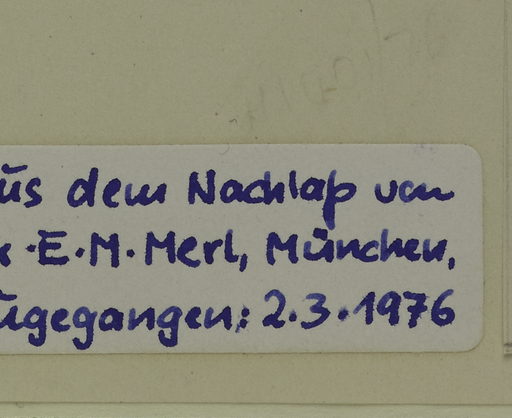 us dem Nachlaß von
.E.M. Merl, München,
ugegangen: 2.3.1976